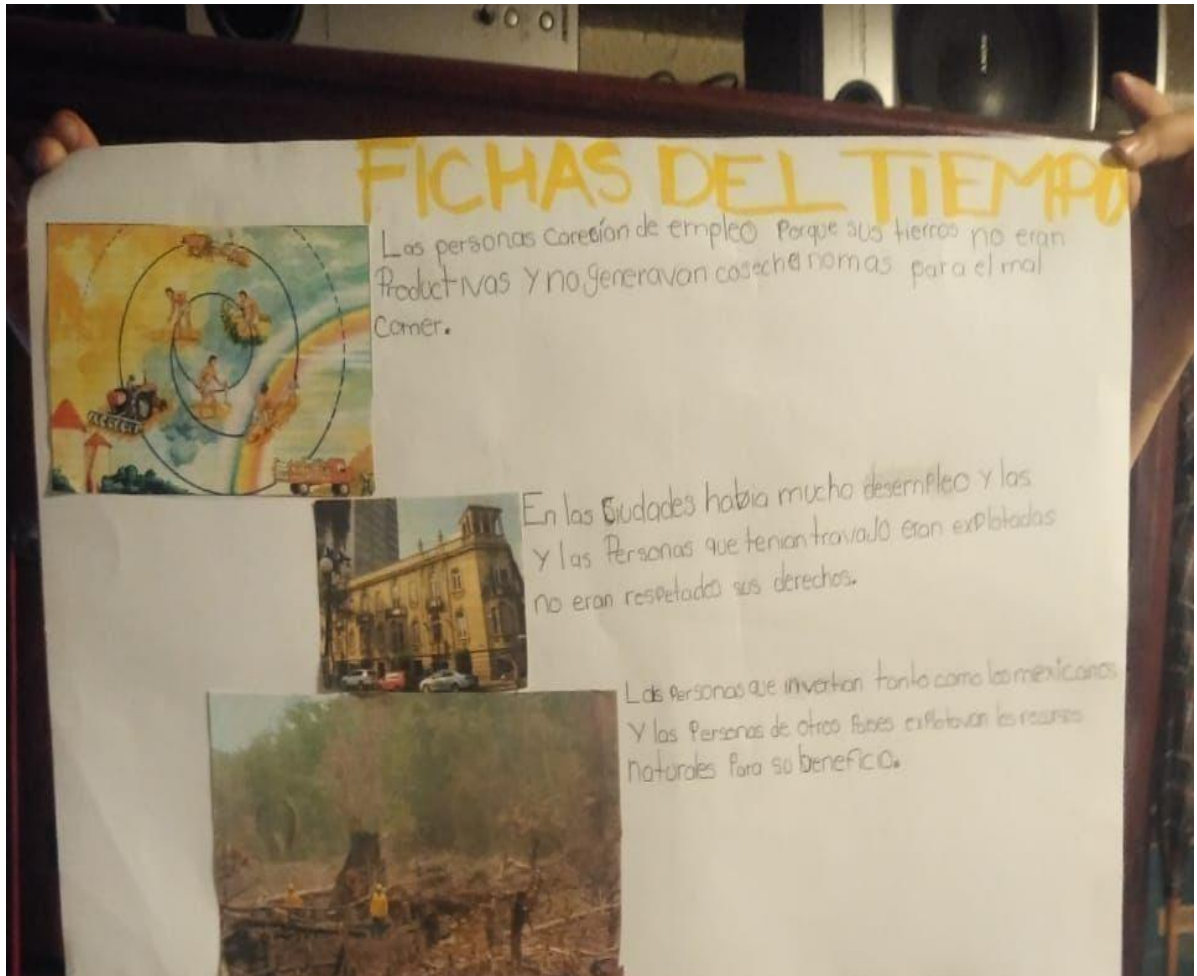 SONY
FICHAS DEL TIEMPO
Las personas caresían de empleo Porque sus tierras no eran
Productivas y no generavan coseche nomas para el mal
comer.
En las Ciudades habia mucho desempleo y las
y las Personas que tenian travaJo eran explotadas
no eran respetados sus derechos.
Las Personas que invertian tanto como los mexicanos
Y las Personas de otros Paises explotavan los recursos
naturales Para su benefico.